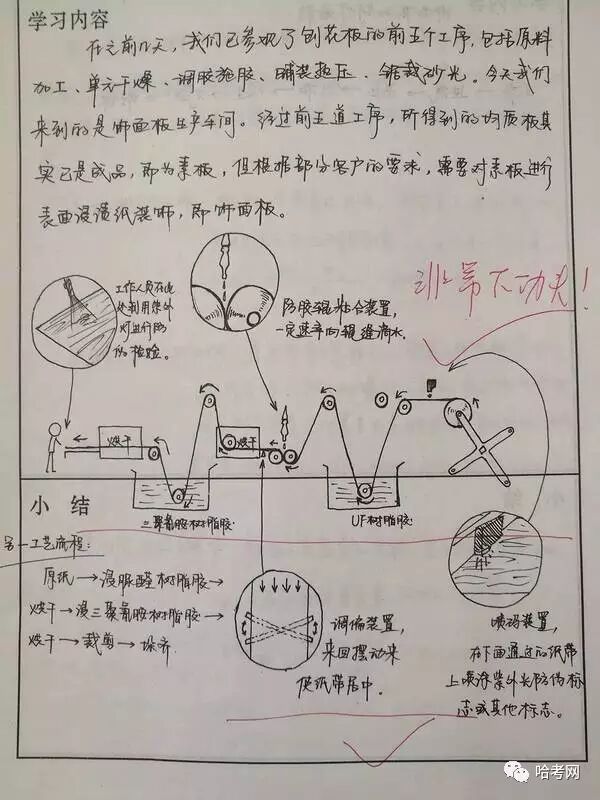 学习内容
在之前几天，我们已参观了刨花板的前五个工序，包括原料
加工、单元干燥、调胶施胶、铺装热压、锯裁砂光。今天我们
来到的是饰面板生产车间。经过前五道工序，所得到的均质板其
实已是成品，即为素板，但根据部分客户的要求，需要对素板进行
表面浸渍纸装饰，即饰面板。
非常下功夫！
工作人员在此
处利用紫外
灯进行防
伪检验。
防胶辊粘合装置，
一定速率向辊缝滴水
烘干
烘干
三聚氰胺树脂胶
UF树脂胶
小 结
另一工艺流程：
原纸→浸脲醛树脂胶→
烘干→浸三聚氰胺树脂胶→
烘干→裁剪→垛齐
调偏装置，
来回摆动来
使纸带居中。
喷码装置，
在下面通过的纸带
上喷涂紫外光防伪标
志或其他标志。
哈考网